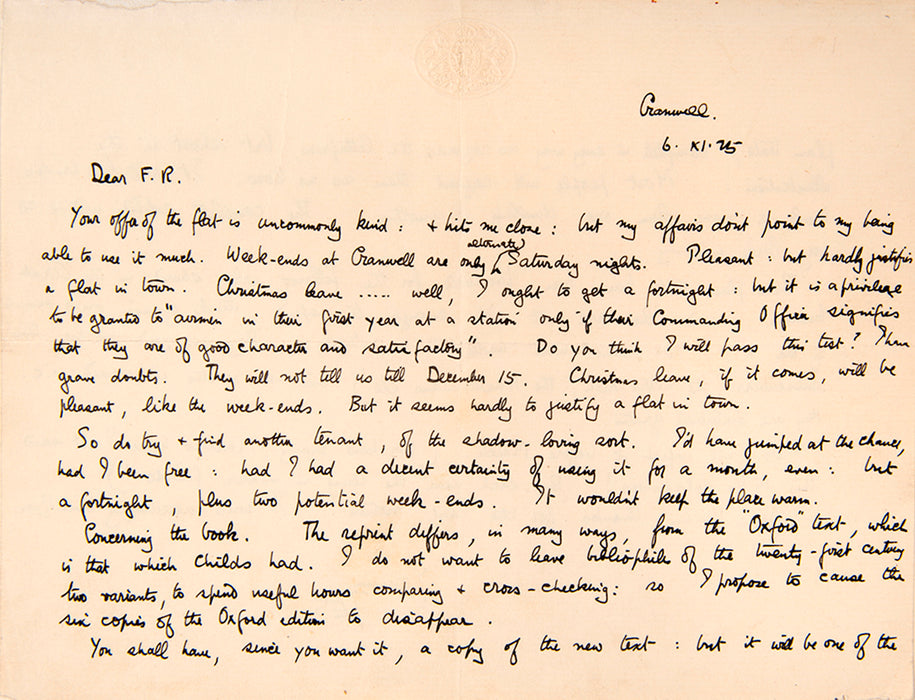 Cranwell.
6. XI. 25
Dear F. R.
Your offer of the flat is uncommonly kind : + hits me close : but my affairs don't point to my being
able to use it much. Week-ends at Cranwell are only alternate Saturday nights. Pleasant : but hardly justifies
a flat in town. Christmas leave ..... well, I ought to get a fortnight : but it is a privilege
to be granted to "airmen in their first year at a station only if their Commanding Officer signifies
that they are of good character and satisfactory". Do you think I will pass this test? I have
grave doubts. They will not tell us till December 15. Christmas leave, if it comes, will be
pleasant, like the week-ends. But it seems hardly to justify a flat in town.
So do try + find another tenant, of the shadow-loving sort. I'd have jumped at the chance,
had I been free : had I had a decent certainty of using it for a month, even : but
a fortnight, plus two potential week-ends. It wouldn't keep the place warm.
Concerning the book. The reprint differs, in many ways, from the "Oxford" text, which
is that which Childs had. I do not want to leave bibliophiles of the twenty-first century
two variants, to spend useful hours comparing + cross-checking : so I propose to cause the
six copies of the Oxford edition to disappear.
You shall have, since you want it, a copy of the new text : but it will be one of the